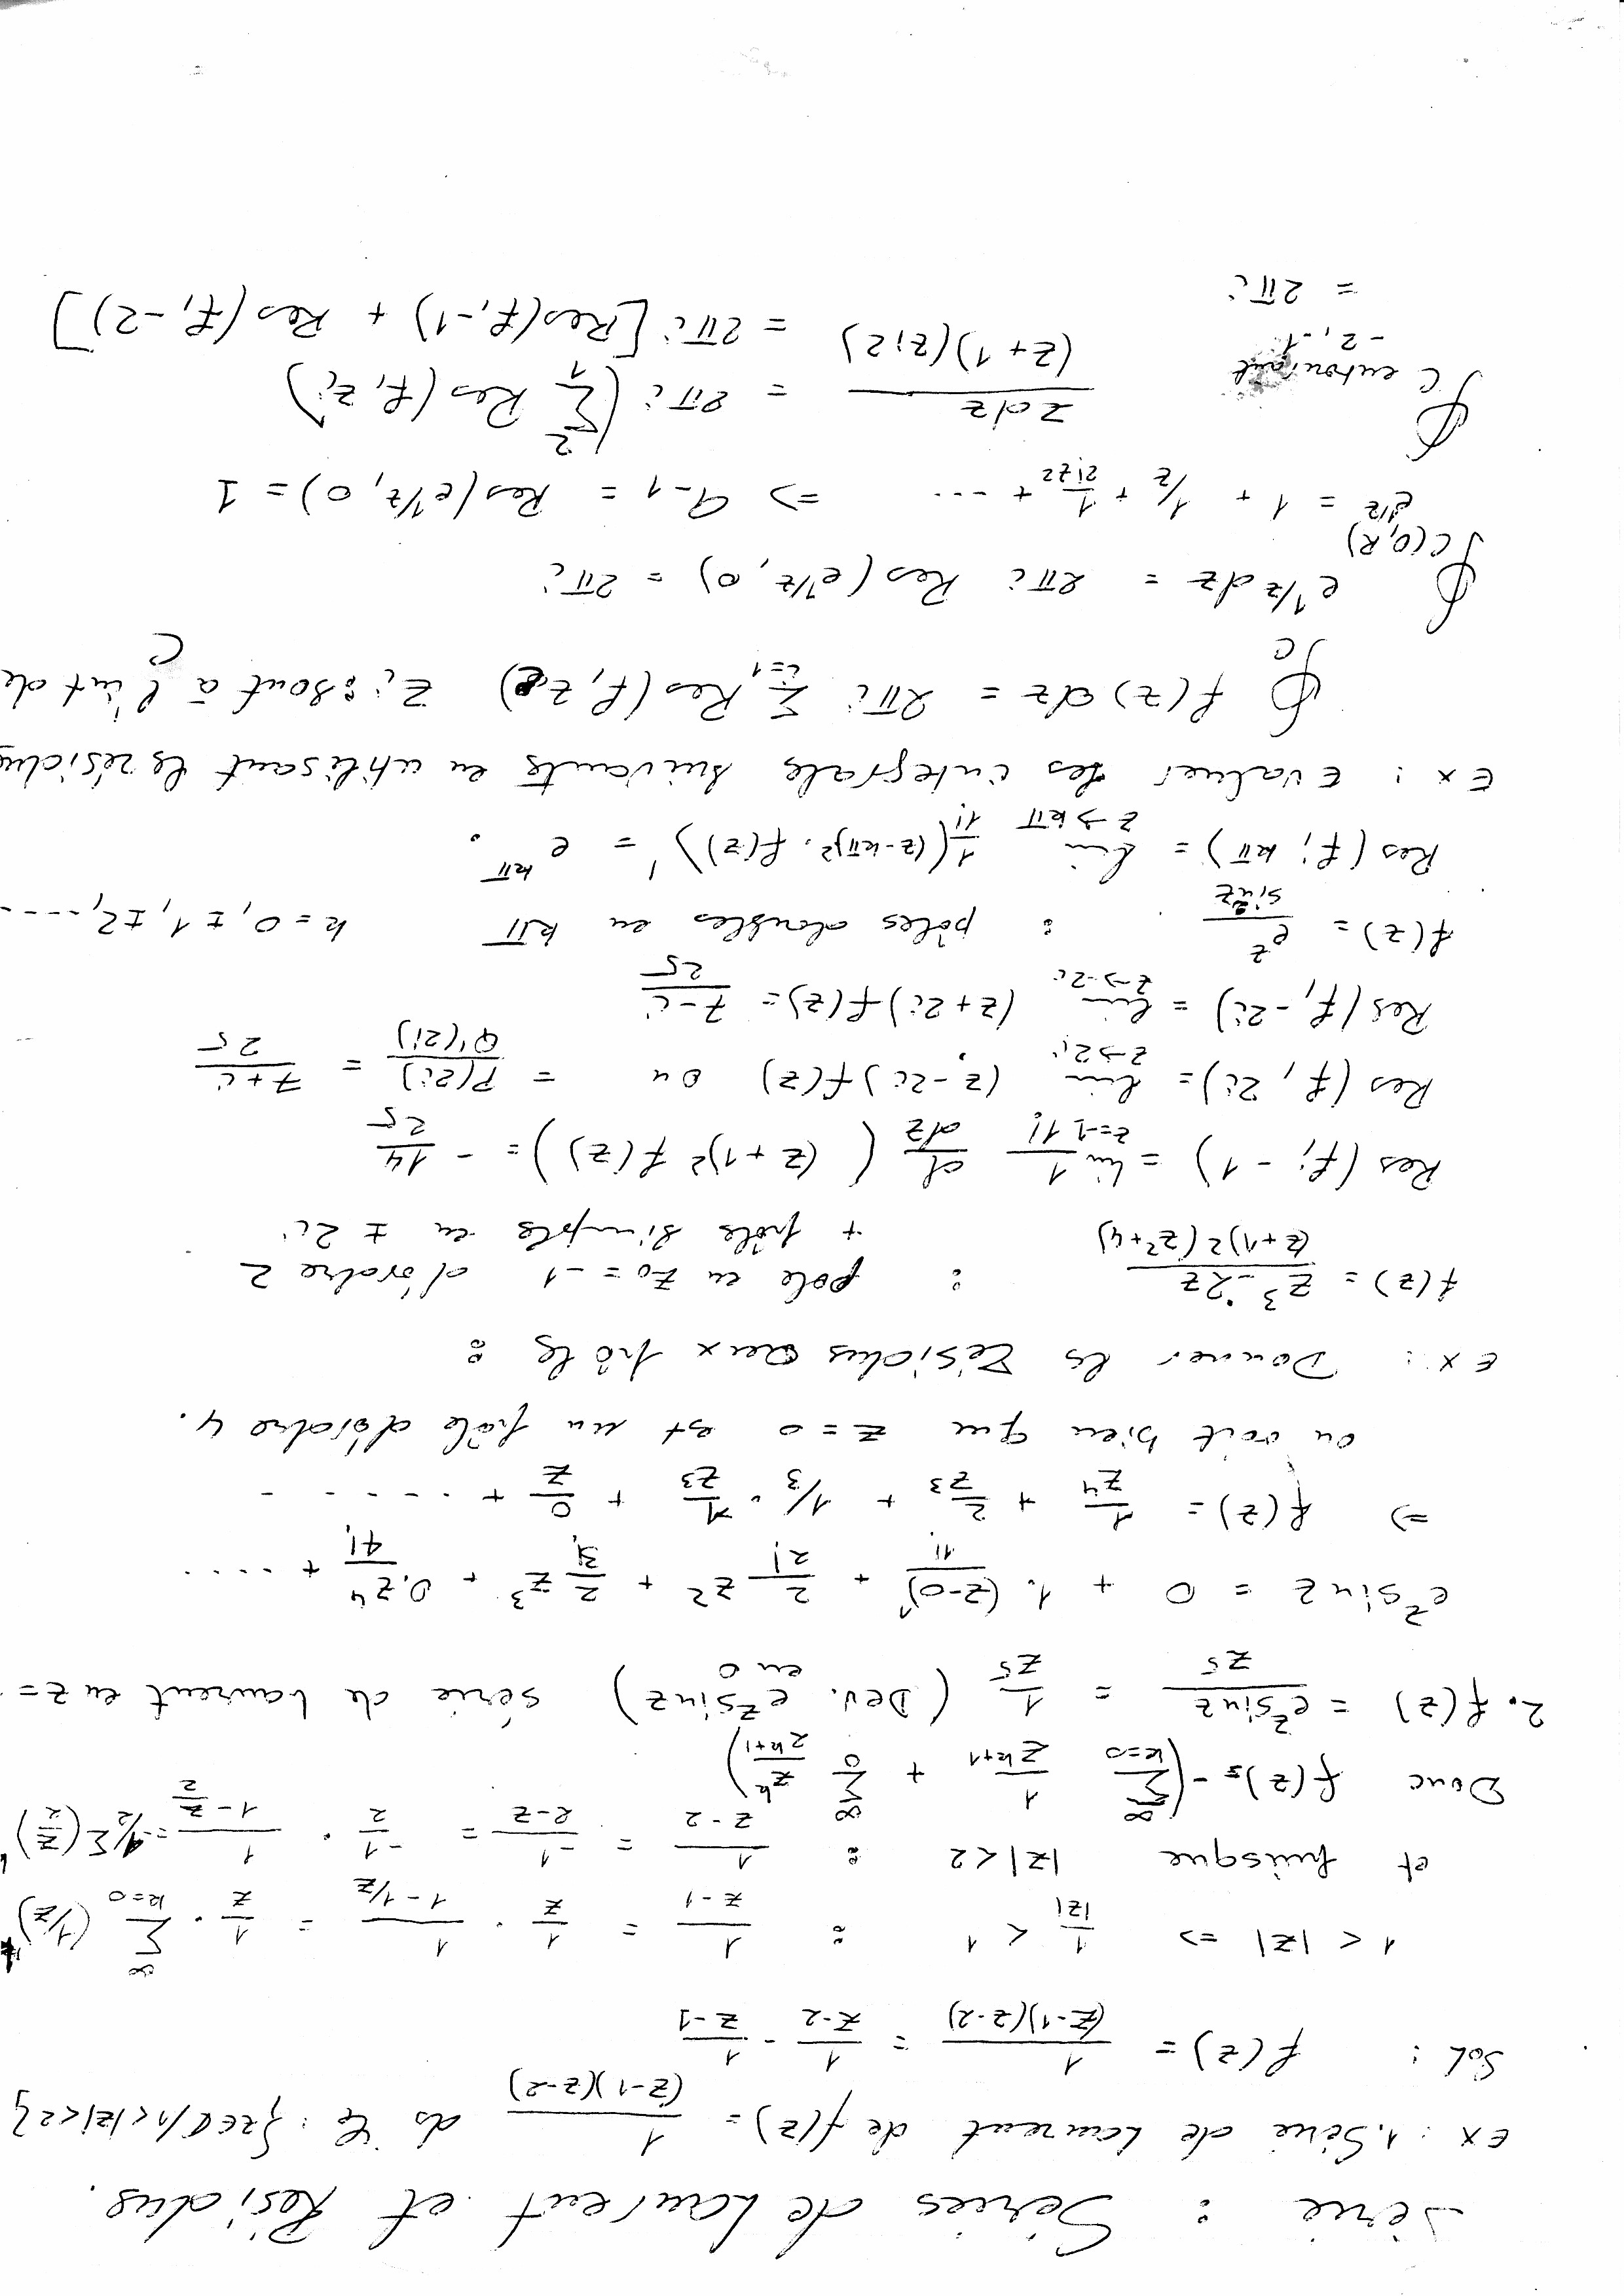 Série : Séries de Laurent et Résidus.
Ex : 1. Série de Laurent de f(z) = 1/((z-1)(z-2)) ds C : {z∈ℂ/1<|z|<2}
Sol : f(z) = 1/((z-1)(z-2)) = 1/(z-2) - 1/(z-1)
1 < |z| => 1/|z| < 1 : 1/(z-1) = 1/z · 1/(1-1/z) = 1/z · ∑_{k=0}^{∞} (1/z)^k
et puisque |z|<2 : 1/(z-2) = -1/(2-z) = -1/2 · 1/(1-z/2) = -1/2 ∑ (z/2)^k
Donc f(z) = -(∑_{k=0}^{∞} 1/z^{k+1} + ∑_{0}^{∞} z^k/2^{k+1})
2. f(z) = e^z sin z/z^5 = 1/z^5 (Dev. e^z sin z en 0) série de Laurent en z =
e^z sin z = 0 + 1. (z-0)^1/1! + 2/2! z^2 + 2/3! z^3 + 0.z^4/4! + ....
=> f(z) = 1/z^4 + 2/z^3 + 1/3 · 1/z^3 + 0/z + ......
on voit bien que z = 0 est un pôle d'ordre 4.
Ex : Donner les Résidus aux pôles :
f(z) = (z^3 - 2z)/((z+1)^2 (z^2+4)) : pole en z_0 = -1 d'ordre 2
+ pôles simples en ± 2i
Res(f; -1) = lim_{z=-1} 1/1! d/dz ((z+1)^2 f(z)) = - 14/25
Res(f, 2i) = lim_{z→2i} (z-2i) f(z) ou = P(2i)/Q'(2i) = (7+i)/25
Res(f, -2i) = lim_{z→-2i} (z+2i) f(z) = (7-i)/25
f(z) = e^z/sin^2 z : pôles doubles en kπ k = 0, ±1, ±2, ----
Res(f; kπ) = lim_{z→kπ} 1/1! ((z-kπ)^2. f(z))' = e^{kπ}.
Ex : Evaluer les intégrales suivantes en utilisant les résidus
∮_C f(z) dz = 2πi ∑_{i=1} Res(f, z_i) z_i : sont à l'int de C
∮_{C(0,R)} e^{1/z} dz = 2πi Res(e^{1/z}, 0) = 2πi
e^{1/z} = 1 + 1/z + 1/(2!z^2) + --- => a_{-1} = Res(e^{1/z}, 0) = 1
∮_{C entourant -2,-1} z dz/((z+1)(z+2)) = 2πi (∑_{1}^{2} Res(f, z_i))
= 2πi [Res(f,-1) + Res(f,-2)]
= 2πi